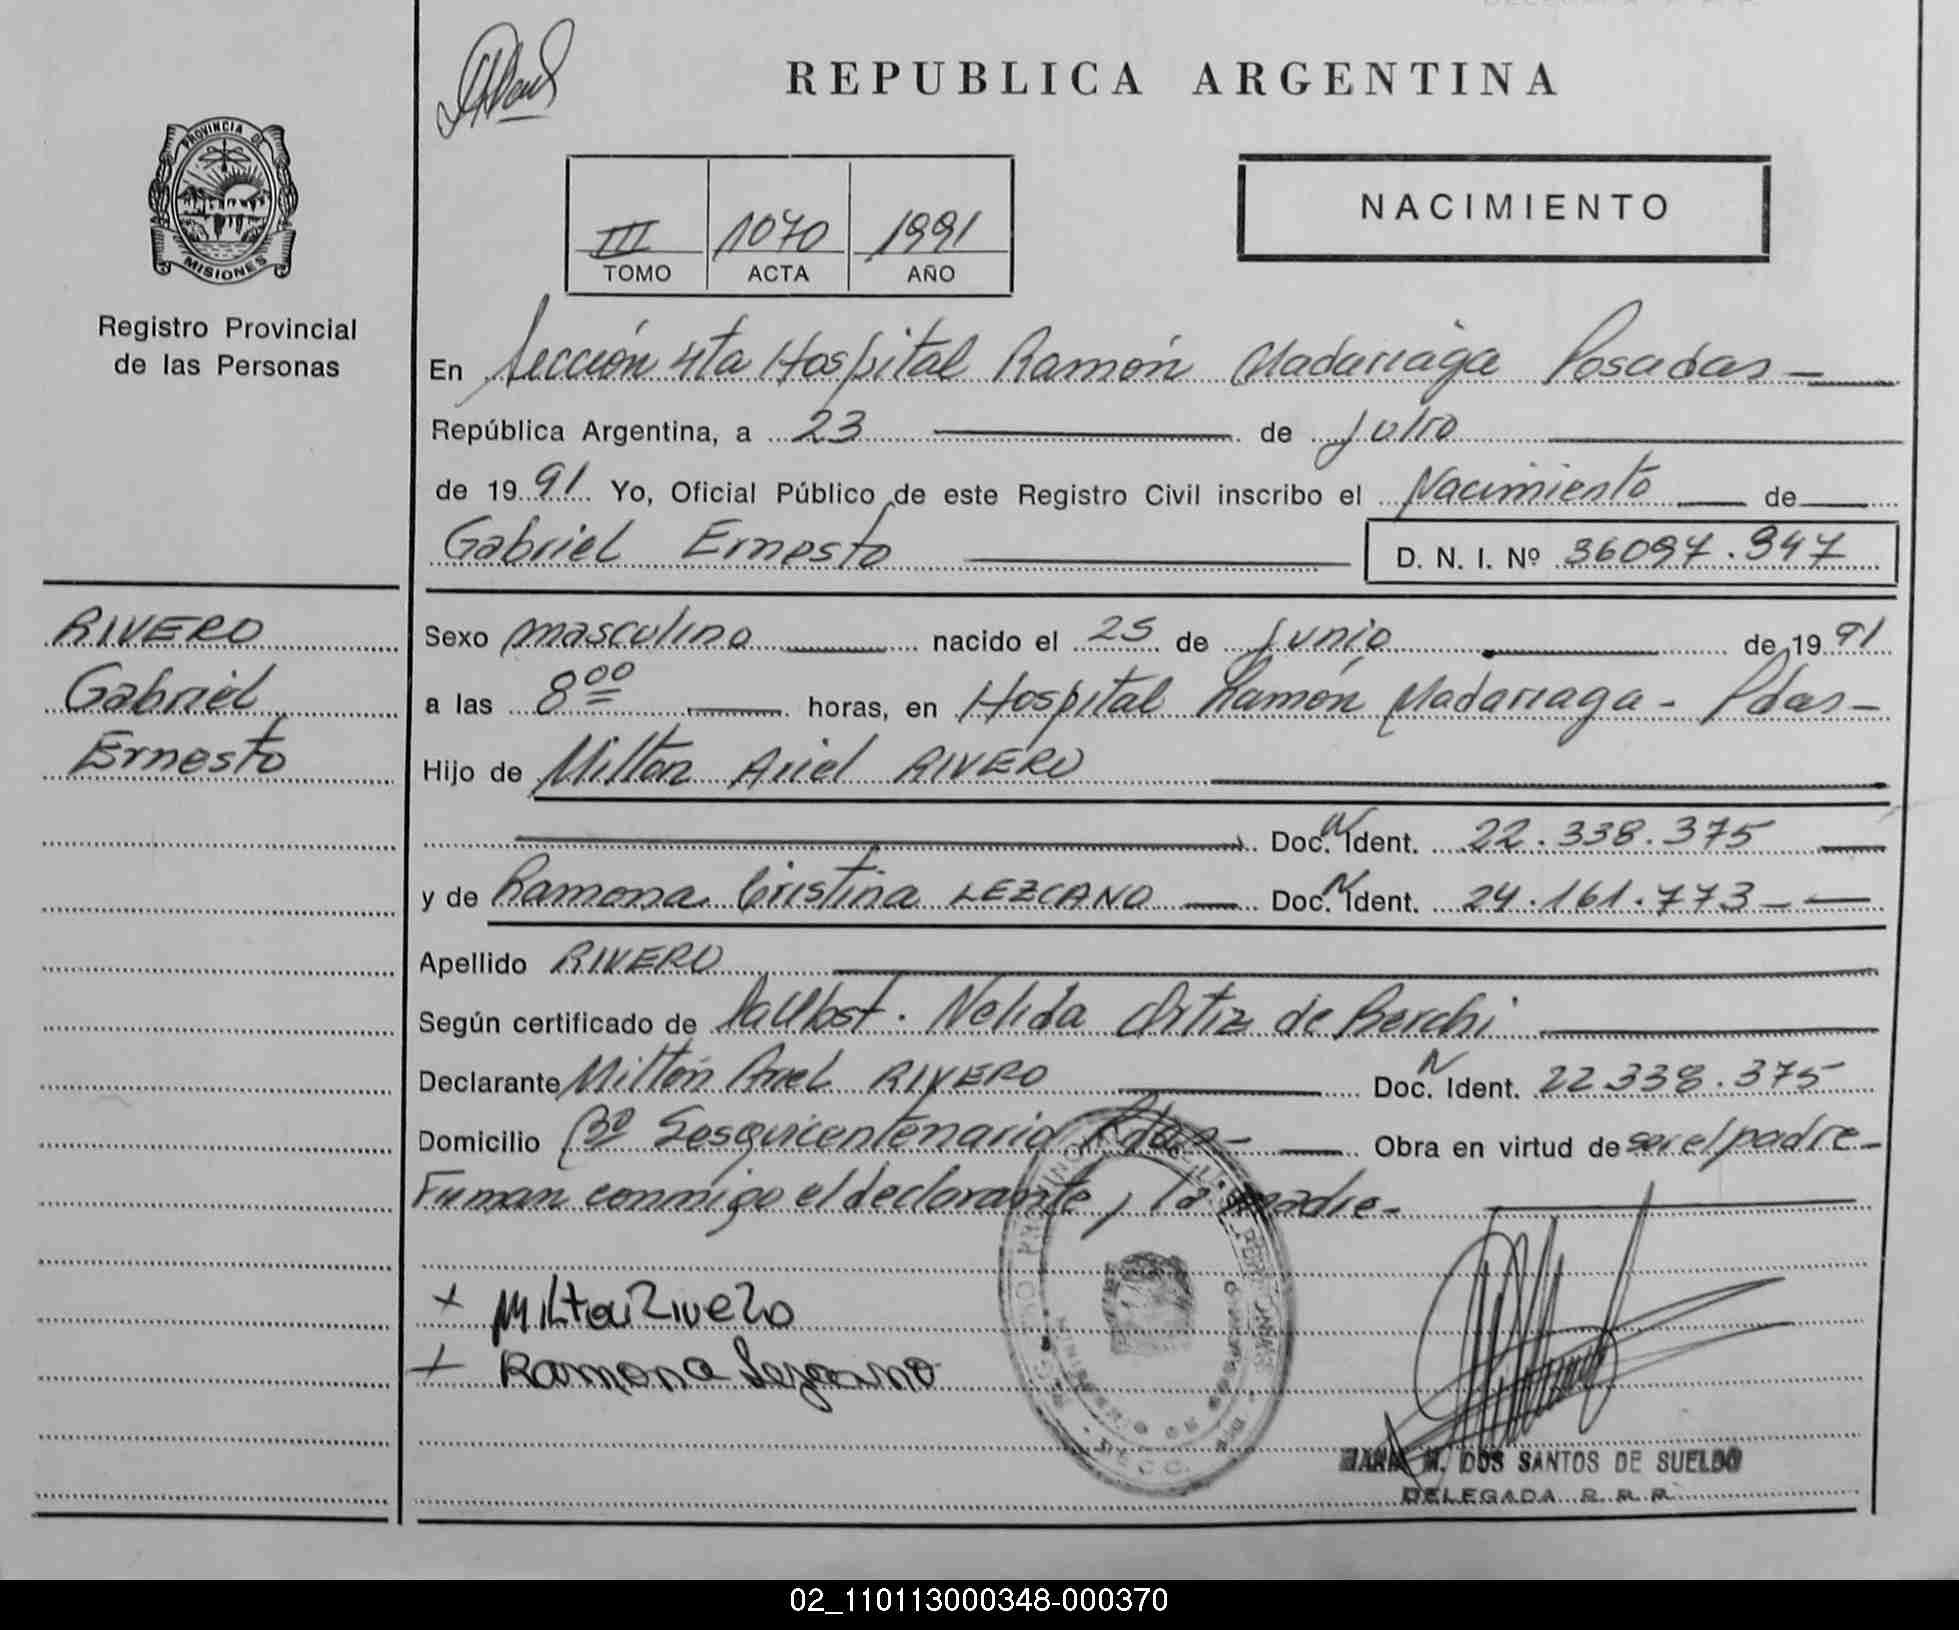 REPUBLICA ARGENTINA
PROVINCIA DE
MISIONES
Registro Provincial
de las Personas
NACIMIENTO
III 1070 1991
TOMO ACTA AÑO
En Sección 4ta Hospital Ramón Madariaga Posadas —
República Argentina, a 23 — de Julio
de 1991 Yo, Oficial Público de este Registro Civil inscribo el Nacimiento — de —
Gabriel Ernesto — D. N. I. Nº 36097.947
RIVERO
Gabriel
Ernesto
Sexo masculino — nacido el 25 de Junio — de 1991
a las 8⁰⁰ — horas, en Hospital Ramón Madariaga - Pdas -
Hijo de Milton Ariel RIVERO
Doc. N Ident. 22.338.375 —
y de Ramona Cristina LEZCANO — Doc. N Ident. 24.161.773 —
Apellido RIVERO
Según certificado de Nelida Ortiz de Berchi
Declarante Milton Ariel RIVERO — Doc. N Ident. 22.338.375
Domicilio Bº Sesquicentenario Pdas - — Obra en virtud de ser el padre -
Firman conmigo el declarante y la madre -
+ Milton Rivero
+ Ramona Lezcano
M. DOS SANTOS DE SUELDO
DELEGADA R. P. P.
02_110113000348-000370